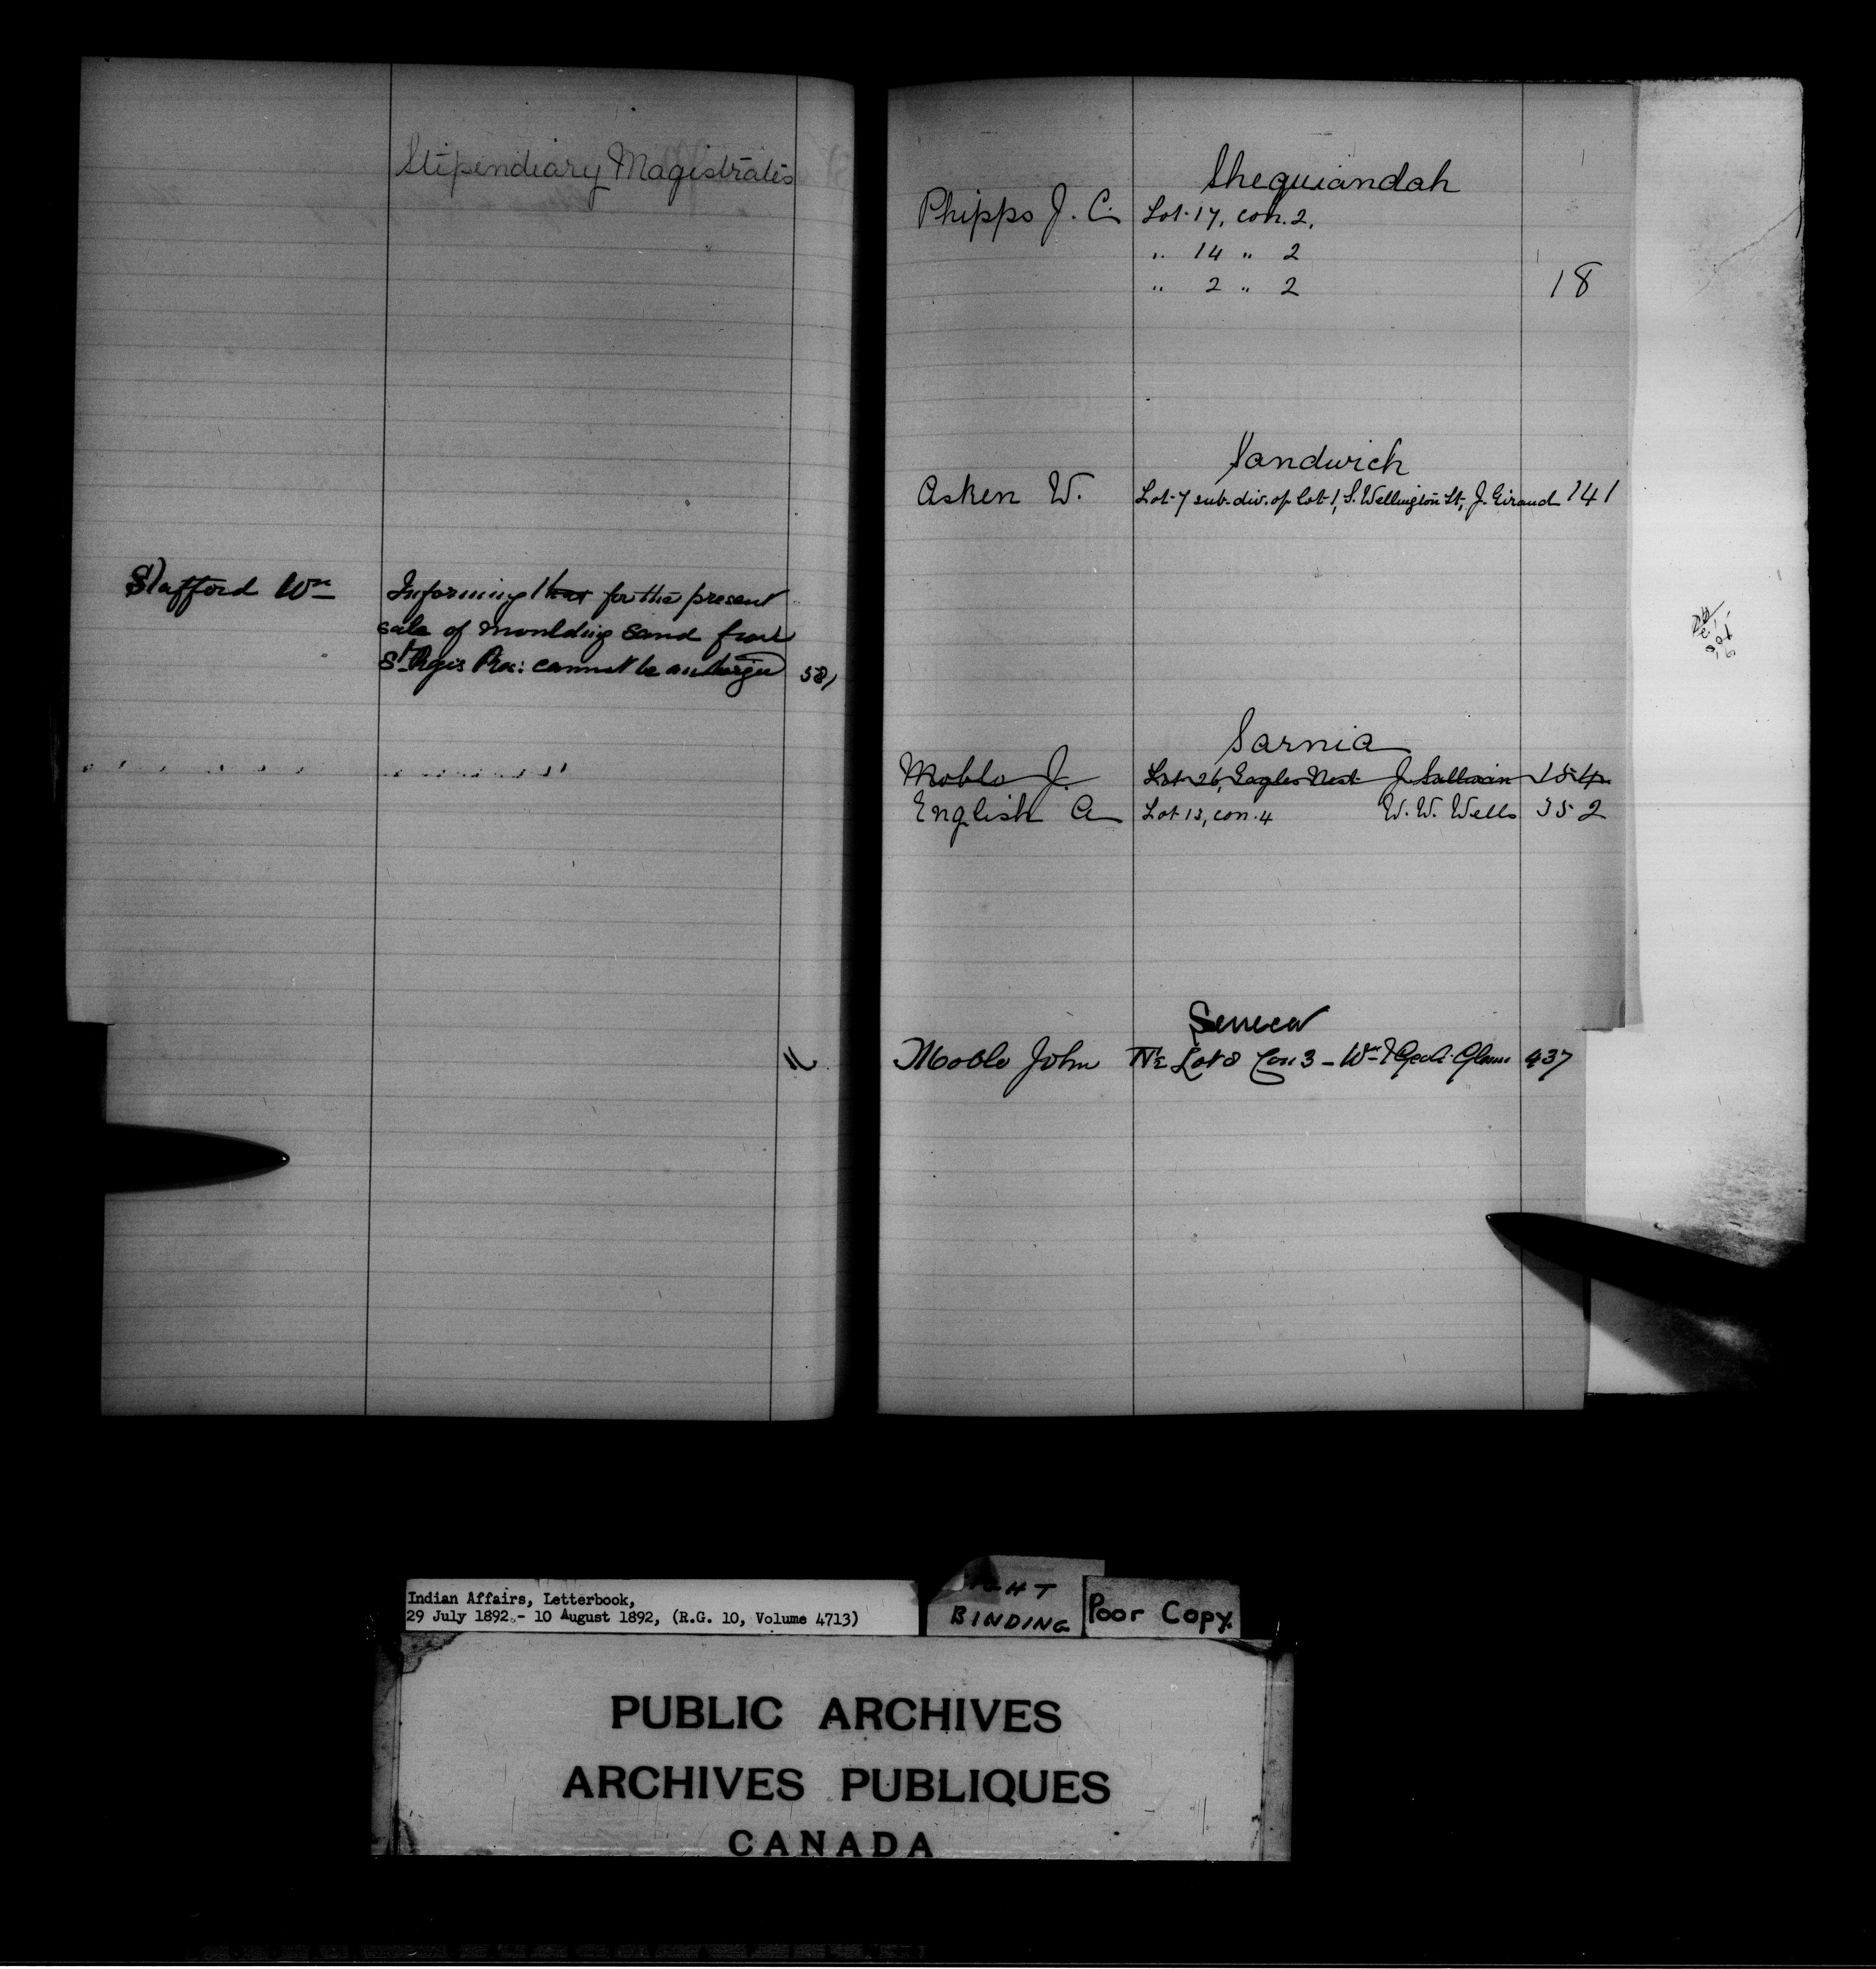 Stipendiary Magistrates
Stafford Wm Informing that for the present
sale of moulding sand from
St Regis Res: cannot be authorized 581
Sheguiandah
Phipps J. C. Lot 17, con. 2,
" 14 " 2
" 2 " 2 18
Sandwich
Asken W. Lot 7 sub-div. of lot 1, S. Wellington St, J. Giraud 141
Sarnia
Moblo J. Lot 26, Eagles Nest J. Sullivan 154
English A Lot 13, con. 4 W. W. Wells 352
Seneca
Moblo John N½ Lot 8 Con 3 - Wm 437
Indian Affairs, Letterbook,
29 July 1892 - 10 August 1892, (R.G. 10, Volume 4713)
BINDING
Poor Copy.
PUBLIC ARCHIVES
ARCHIVES PUBLIQUES
CANADA